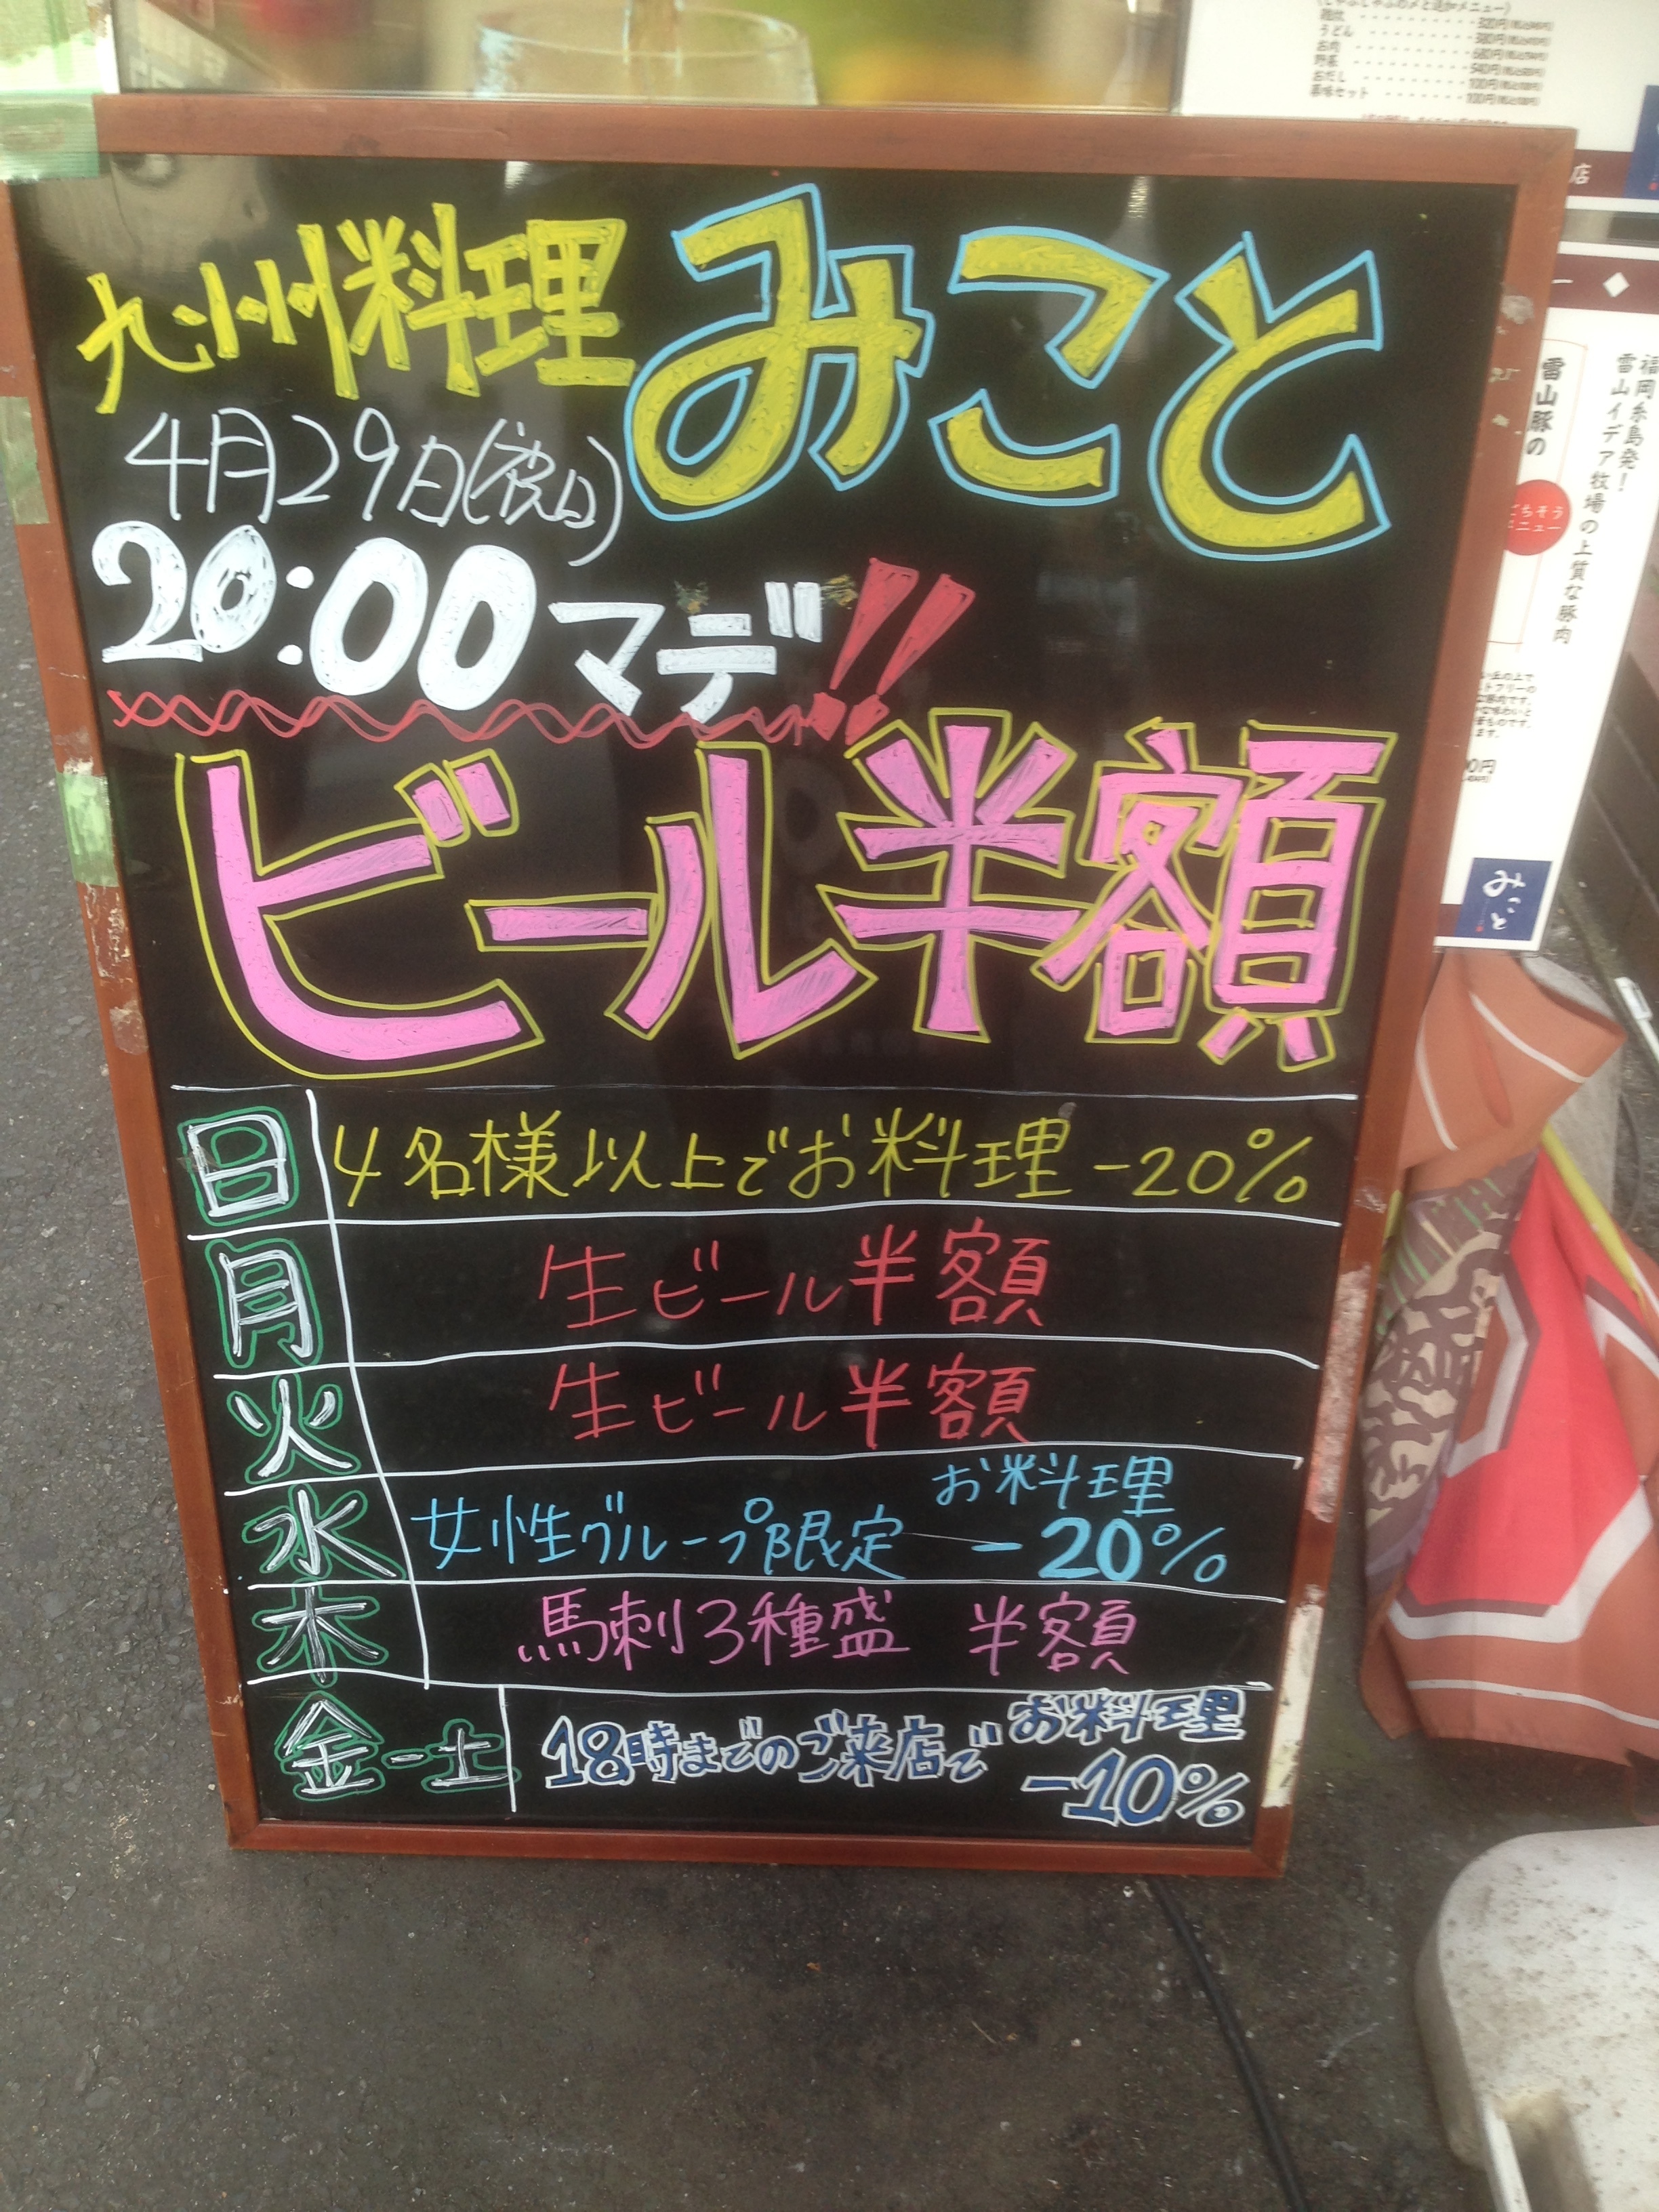 九州料理 みこと
4月29日(祝日)
20:00マデ!!
ビール半額
日 4名様以上でお料理 -20%
月 生ビール半額
火 生ビール半額
水 女性グループ限定 お料理 -20%
木 馬刺3種盛 半額
金-土 18時までのご来店で お料理 -10%
雑炊
うどん
お肉
野菜
おだし
薬味セット
店
福岡糸島発!
雷山イデア牧場の上質な豚肉
雷山豚の
ごちそう
メニュー
みこと